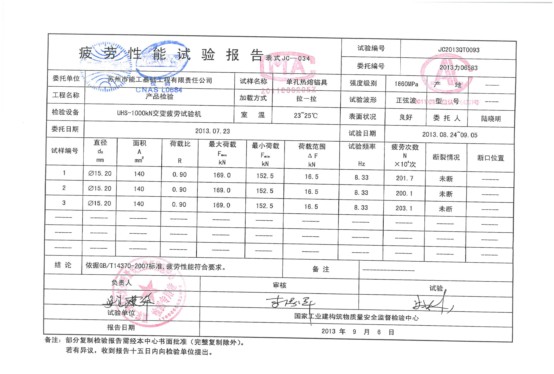 疲劳性能试验报告 表式JC—034
试验编号 JC2013GT0093
委托编号 2013力06583
委托单位 苏州市能工基础工程有限责任公司 试样名称 单孔热熔锚具 强度级别 1860MPa 产地 ——
工程名称 产品检验 加载方式 拉—拉 试验波形 正弦波 型号 ——
检验设备 UHS-1000kN交变疲劳试验机 室温 23~25℃ 表面状况 良好 委托人 陆晓明
委托日期 2013.07.23 试验日期 2013.08.24~09.05
试样编号 直径 d₀ mm 面积 A mm² 荷载比 R 最大荷载 Fmax kN 最小荷载 Fmin kN 荷载范围 ΔF kN 试验频率 Hz 疲劳次数 N ×10⁴次 断裂情况 断口位置
1 ∅15.20 140 0.90 169.0 152.5 16.5 8.33 201.7 未断 ——
2 ∅15.20 140 0.90 169.0 152.5 16.5 8.33 200.1 未断 ——
3 ∅15.20 140 0.90 169.0 152.5 16.5 8.33 203.1 未断 ——
结论 依据GB/T14370-2007标准,疲劳性能符合要求。 备注 ——
负责人 审核 试验
试验单位 国家工业建构筑物质量安全监督检验中心
报告日期 2013年9月8日
备注：部分复制检验报告需经本中心书面批准（完整复制除外）。
若有异议，收到报告十五日内向检验单位提出。
CNAS L0684